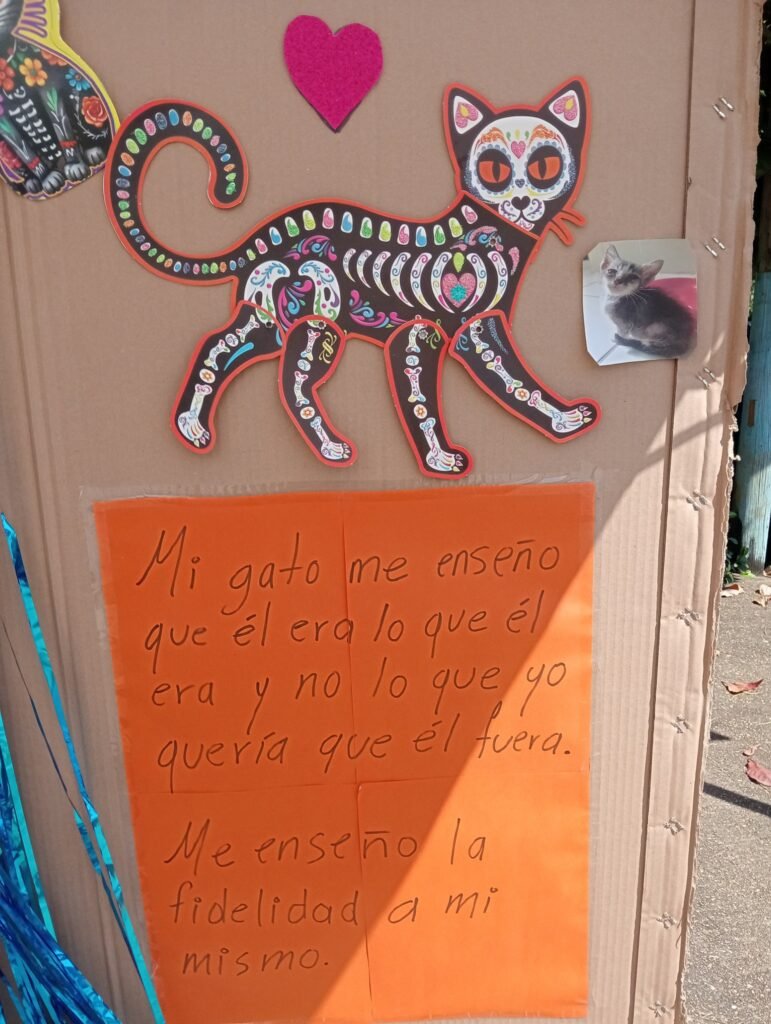 Mi gato me enseño
que él era lo que él
era y no lo que yo
quería que él fuera.
Me enseño la
fidelidad a mi
mismo.